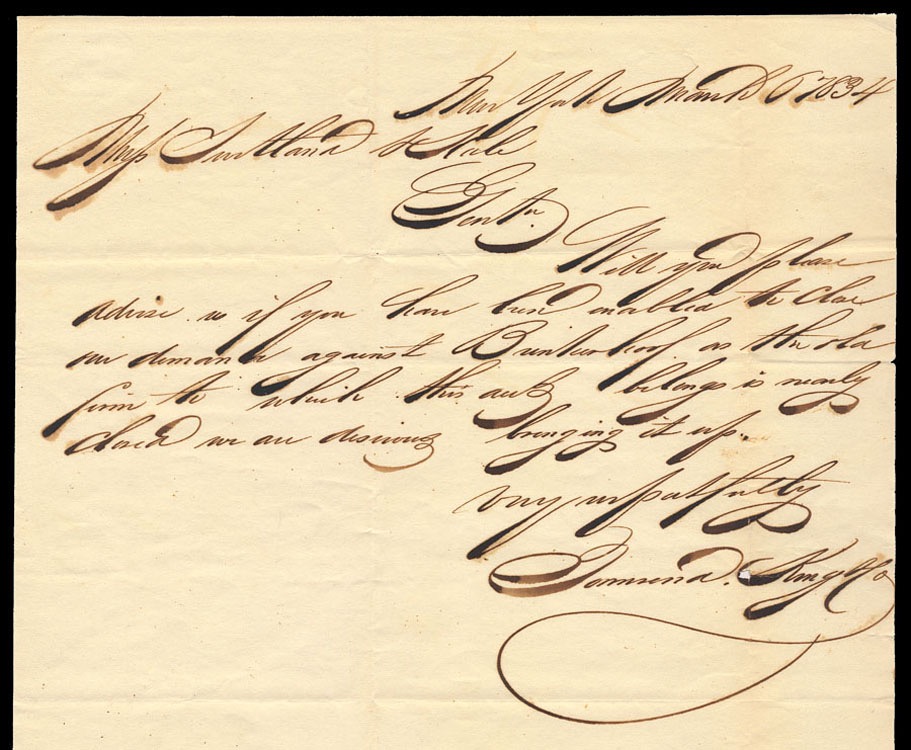 New York March 6 1834
Mess Suttland & Hale
Gentn.
Will you please
advise us if you have been enabled to close
our demands against Brinkerhoof as the old
firm to which this acct belongs is nearly
closed we are desirous bringing it up.
Very respectfully
Townsend. King & Co